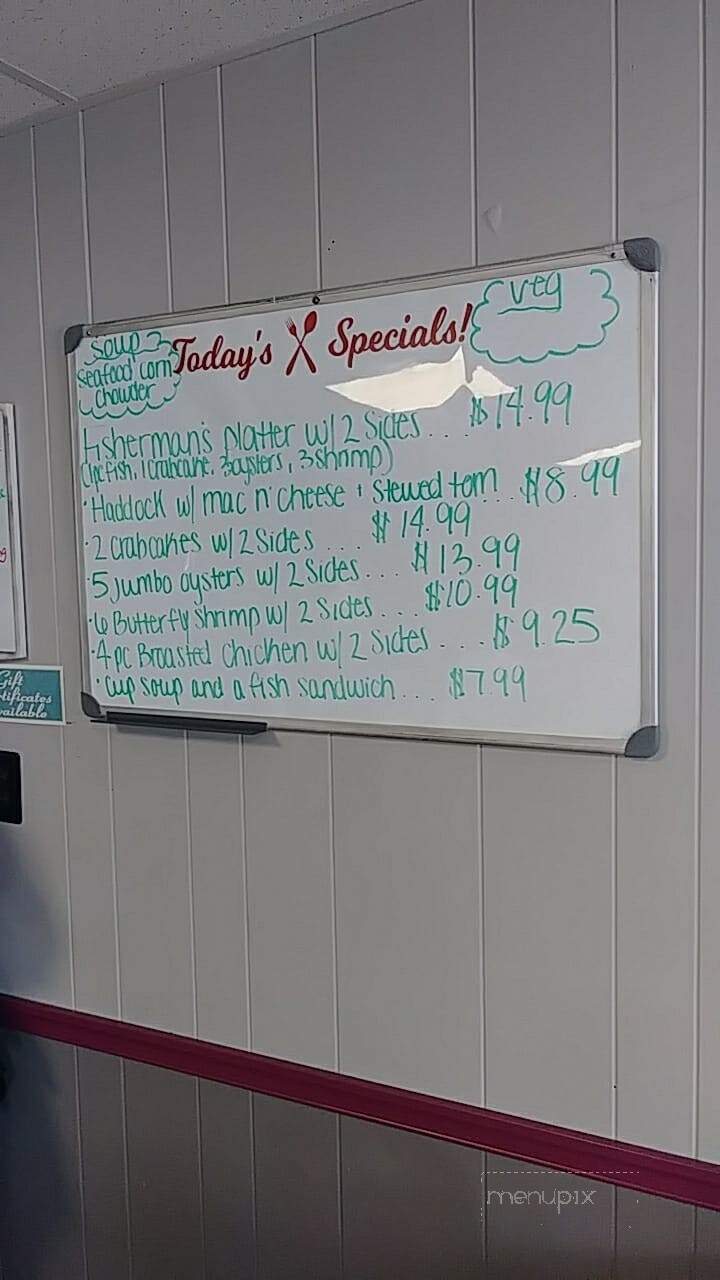 Soup
Seafood corn
chowder
Today's Specials!
Veg
Fisherman's platter w/ 2 Sides ... $14.99
(1pc fish, 1 crabcake, 3 oysters, 3 shrimp)
· Haddock w/ mac n' cheese + Stewed tom ... $8.99
· 2 crabcakes w/ 2 Sides .... $14.99
· 5 Jumbo oysters w/ 2 Sides... $13.99
· 6 Butterfly Shrimp w/ 2 Sides ... $10.99
· 4 pc Broasted chicken w/ 2 Sides ... $9.25
· cup soup and a fish sandwich... $7.99
Gift
tificates
vailable
menupix